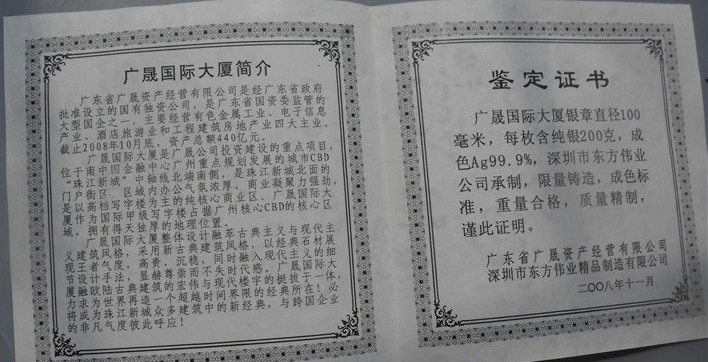 广晟国际大厦简介
广东省广晟资产经营有限公司是经广东省政府
批准设立的国有独资公司，是广东省国资委监管的
大型国企之一，主要经营有色金属工业、电子信息
产业、酒店旅游业和工程建筑房地产业四大主业。
截止2008年10月底，资产总额440亿元。
广晟国际大厦是广晟公司投资建设的重点项目，
位于南中国金融中心广州重点规划发展的城市CBD
“珠江新城”中轴线北端南侧，是珠江新城北面的
门户街区，区域内办公气氛浓厚，商业凝聚力强劲，
是以高档写字楼为主的纯核心商业区。广晟国际大
厦作为国际甲级写字楼占据广州核心CBD的核心区
域，拥有得天独厚的地理位置。
广晟国际大厦整体设计融萃古典主义与现代主
义建筑风格，采用新古典建筑风格，以经典石材展
现王者气度，高贵、沉稳，同时融入现代主义的细
节设计手法，显赫尊崇而不失时代感。广晟国际大
厦融欧陆古典建筑的宏伟与现代楼宇的挺拔于一体，
力求为世界再造一个超越时间界限的经典所在！必
将成为珠江新城众多建筑中的新经典，与跨国企业
的非凡气度彼此呼应！
鉴定证书
广晟国际大厦银章直径100
毫米，每枚含纯银200克，成
色Ag99.9%，深圳市东方伟业
公司承制，限量铸造，成色标
准，重量合格，质量精制，
谨此证明。
广东省广晟资产经营有限公司
深圳市东方伟业精品制造有限公司
二〇〇八年十一月